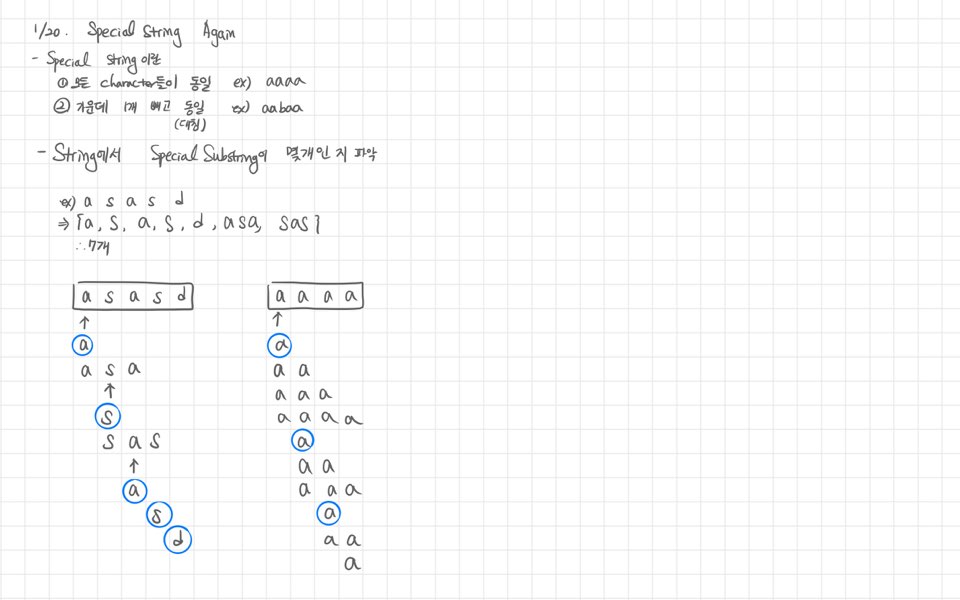 1/20. Special String Again
- Special string이란
① 모든 character들이 동일 ex) aaaa
② 가운데 1개 빼고 동일 ex) aabaa
(대칭)
- String에서 Special Substring이 몇개인 지 파악
ex) a s a s d
⇒ [a, s, a, s, d, asa, sas]
∴ 7개
a s a s d
↑
a
a s a
↑
s
s a s
↑
a
s
d
a a a a
↑
a
a a
a a a
a a a a
a
a a
a a a
a
a a
a